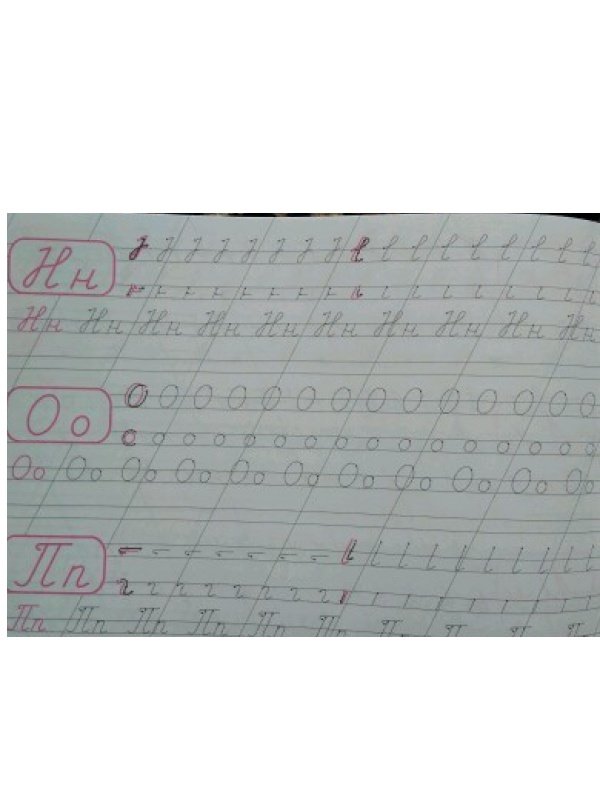 Нн
Нн Нн Нн Нн Нн Нн Нн Нн Нн Нн
Оо
О О О О О О О О О О О О О О
о о о о о о о о о о о о о о о о
Оо Оо Оо Оо Оо Оо Оо Оо Оо Оо Оо
Пп
Пп Пп Пп Пп Пп Пп